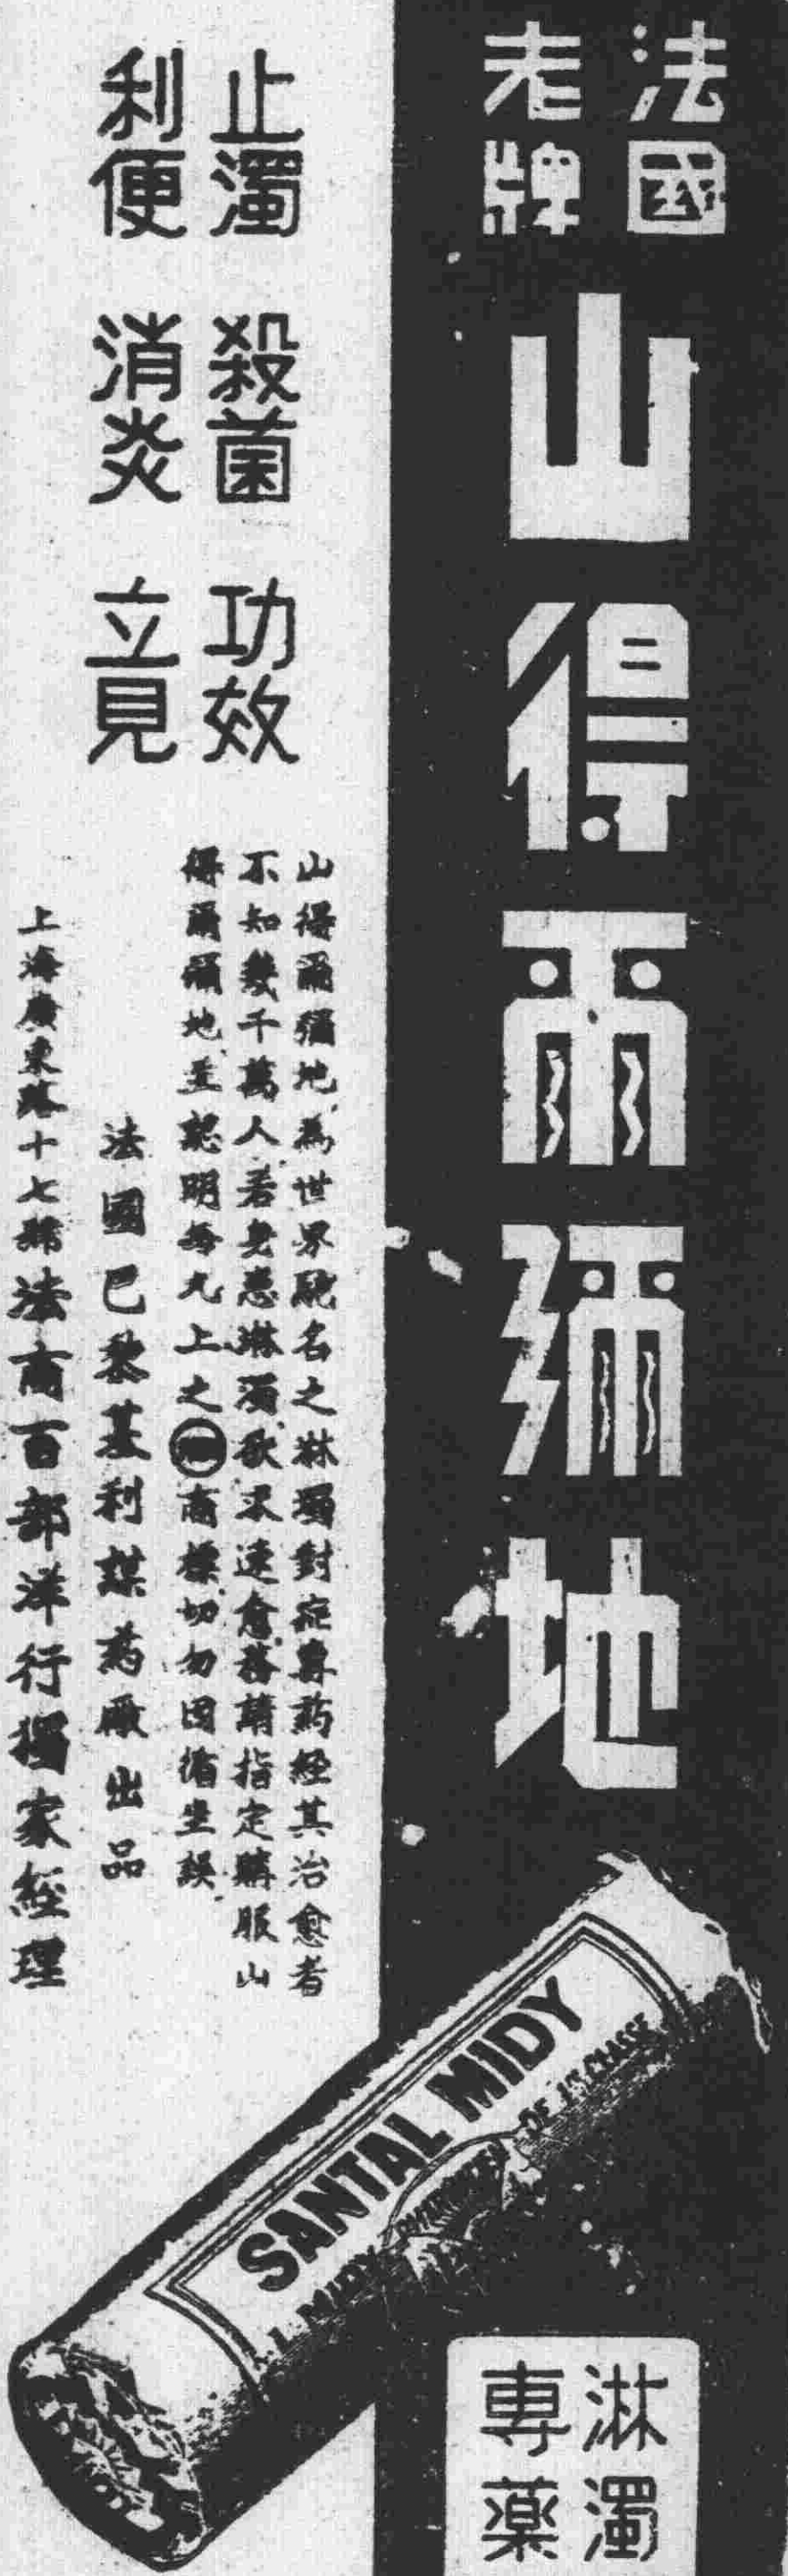 法國
老牌
山得爾彌地
止濁 殺菌 功效
利便 消炎 立見
山得爾彌地為世界馳名之淋濁對症專藥經其治愈者
不知幾千萬人若身患淋濁欲求速愈務請指定購服山
得爾彌地並認明每丸上之商標切勿因循坐誤
法國巴黎基利謀葯厰出品
上海廣東路十七號法商百部洋行獨家經理
SANTAL MIDY
L. MIDY
OF 1ST CLASSE
淋濁
專藥